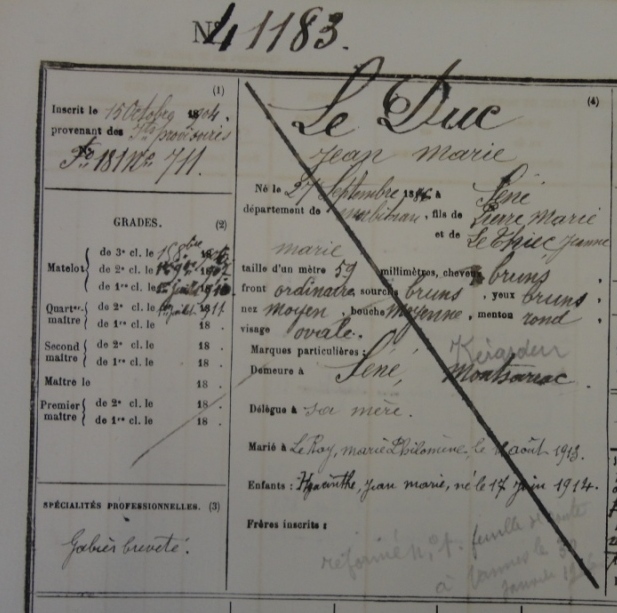 N° 41183.
(1)
Inscrit le 15 Octobre 1904.
provenant des Ins provisoires
Fo 181 No 711.
GRADES. (2)
Matelot
de 3e cl. le
de 2e cl. le
de 1re cl. le
Quartr-maître
de 2e cl. le 1911
de 1re cl. le 18 .
Second maître
de 2e cl. le 18 .
de 1re cl. le 18 .
Maître le 18 .
Premier maître
de 2e cl. le 18 .
de 1re cl. le 18 .
SPÉCIALITÉS PROFESSIONNELLES. (3)
Gabier breveté.
(4)
Le Duc
Jean Marie
Né le 27 Septembre 1886 à Séné
département de Morbihan, fils de Pierre Marie
et de Le Thiec, Jeanne
marie
taille d'un mètre 59 millimètres, cheveux bruns,
front ordinaire, sourcils bruns, yeux bruns,
nez moyen, bouche moyenne, menton rond,
visage ovale.
Marques particulières :
Kerarden
Demeure à Séné, Montsarrac
Délègue à sa mère.
Marié à Le Roy, marie Philomène, le août 1913.
Enfants : Hyacinthe, Jean marie, né le 17 Juin 1914.
Frères inscrits :
réformé n° 1. feuille de route
à Vannes le 30
Janvier